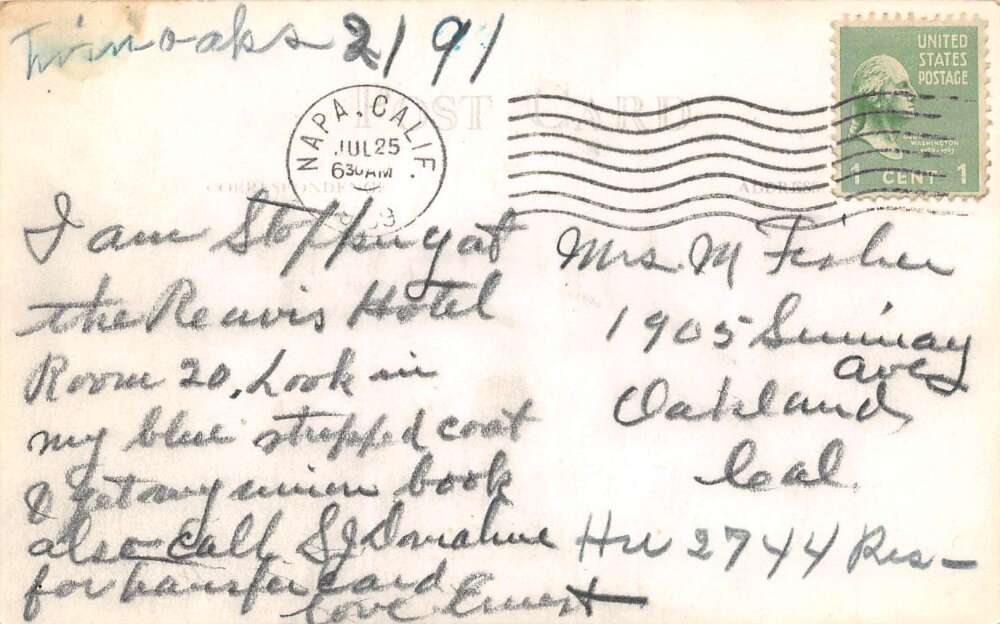 Twinoaks 2191
POST CARD
NAPA, CALIF.
JUL 25
630 AM
UNITED
STATES
POSTAGE
WASHINGTON
1 CENT 1
CORRESPONDENCE
ADDRESS
I am Stopping at
the Reavis Hotel
Room 20. Look in
my blue stripped coat
& get my union book
also call SJ Donahue
for transfer card
love Ernest
Mrs. M Fisher
1905 Seminay
Ave
Oakland
Cal.
2744 Res-